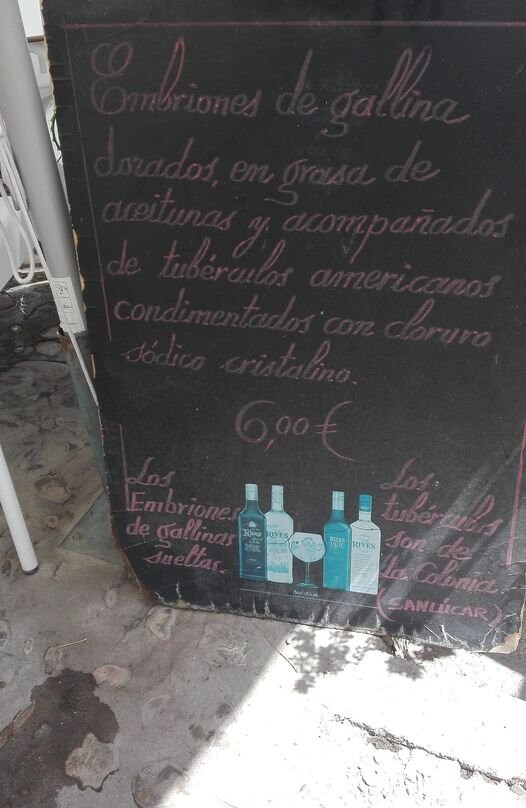 Embriones de gallina
dorados, en grasa de
aceitunas y acompañados
de tubérculos americanos
condimentados con cloruro
sódico cristalino.
6,00 €
Los
Embriones
de gallinas
sueltas.
RIVES
RIVES
RIVES
RIVES
Los
tubérculos
son de
la Colonia.
(SANLÚCAR)